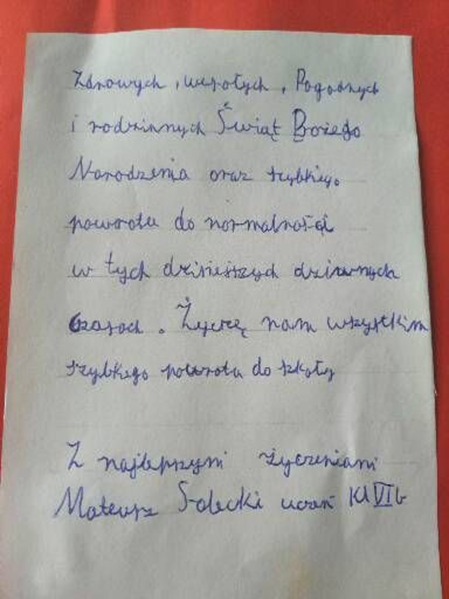 Zdrowych, wesołych, Pogodnych
i rodzinnych Świąt Bożego
Narodzenia oraz szybkiego
powrotu do normalności
w tych dzisiejszych dziwnych
czasach. Życzę nam wszystkim
szybkiego powrotu do szkoły
Z najlepszymi życzeniami
Mateusz Solecki uczeń Kl VI b